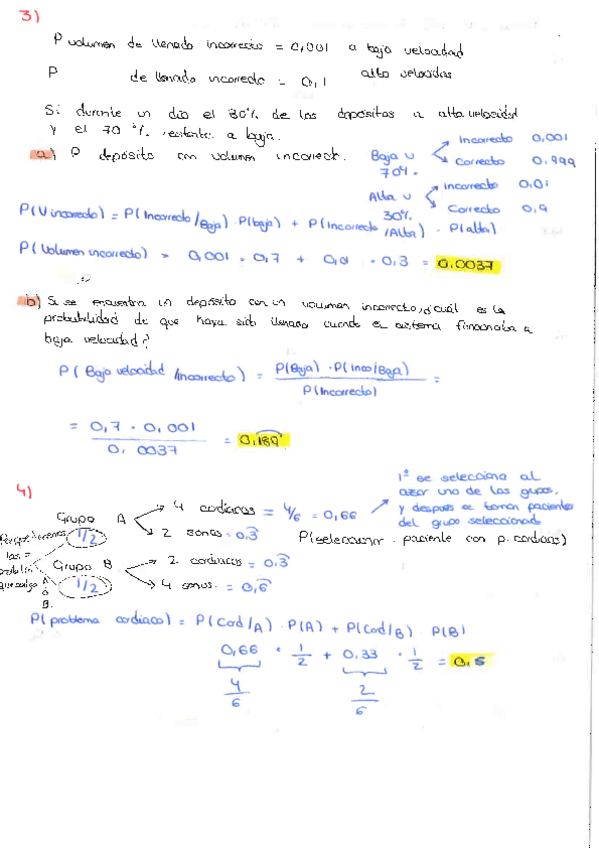 3)
P volumen de llenado incorrecto = 0,001 a baja velocidad
P de llenado incorrecto = 0,1 alta velocidad
Si durante un dia el 30% de los depósitos a alta velocidad
y el 70 % restante a baja.
a) P depósito con volumen incorrect.
Baja v 70%. Incorrecto 0,001
Correcto 0,999
Alta v 30%. incorrecto 0,01
Correcto 0,9
P(V incorrecto) = P(Incorrecto/Baja) · P(baja) + P(Incorrecto/Alta) · P(alta)
P(Volumen incorrecto) = 0,001 · 0,7 + 0,01 · 0,3 = 0.0037
b) Si se encuentra un depósito con un volumen incorrecto, ¿cuál es la
probabilidad de que haya sido llenado cuando el sistema funcionaba a
baja velocidad?
P( Baja velocidad /Incorrecto) = P(Baja) · P(inco/Baja) =
P(Incorrecto)
= 0,7 · 0,001 = 0,189
0,0037
4)
1º se selecciona al
azar uno de los grupos,
y después se toman paciente
del grupo seleccionado
Grupo A 4 cardiacos = 4/6 = 0,66
1/2 2 sanos = 0,3
P(seleccionar paciente con p. cardiaco)
Porque tenemos
las =
que salga A
o
B.
Grupo B 2 cardiacos = 0,3
1/2 4 sanos = 0,6
P(problema cardiaco) = P(Card/A) · P(A) + P(Card/B) · P(B)
0,66 · 1/2 + 0,33 · 1/2 = 0,5
4/6 2/6